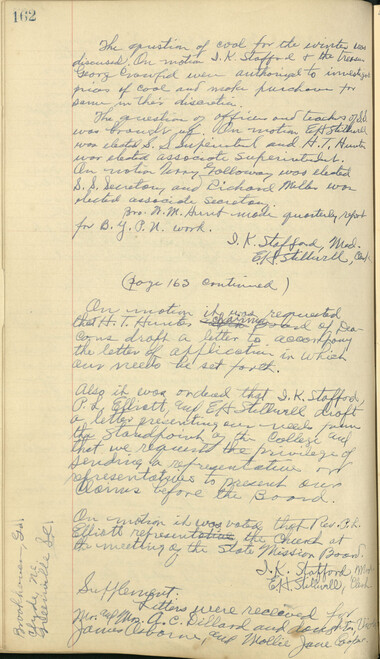 162
The question of coal for the winter was
discussed. On motion I. K. Stafford & the
were authorized to investigate
prices of coal and make purchases for
same in their discretion.
The question of officers and teachers of S.S.
was brought up. On motion E H Stillwell
was elected S. S. Superintendent and H. T. Hunter
was elected associate Superintendent.
On motion Galloway was elected
S. S. Secretary and Richard was
elected associate secretary.
Bro. Hunt made quarterly report
for B. Y. P. U. work.
I. K. Stafford, Mod.
E H Stillwell, Clerk.
(page 163 continued)
On motion it was requested
that H. T. Hunter chairman Board of Dea-
cons draft a letter to accompany
the letter of application in which
our needs be set forth.
Also it was ordered that I. K. Stafford,
P. L. Elliott, and E H Stillwell draft
a letter presenting our needs from
the standpoint of the College and
that we request the privilege of
sending a representative or
representatives to present our
claims before the Board.
On motion it was voted that Rev. P. L.
Elliott represent the Church at
the meeting of the State Mission Board.
I. K. Stafford Mod
E H Stillwell, Clerk
Supplement:
Letters were received for
Mr. and Mrs. A. C. Dillard and daughter
James Osborne, and Mollie Jane
Clyde, N.C.
Greenville